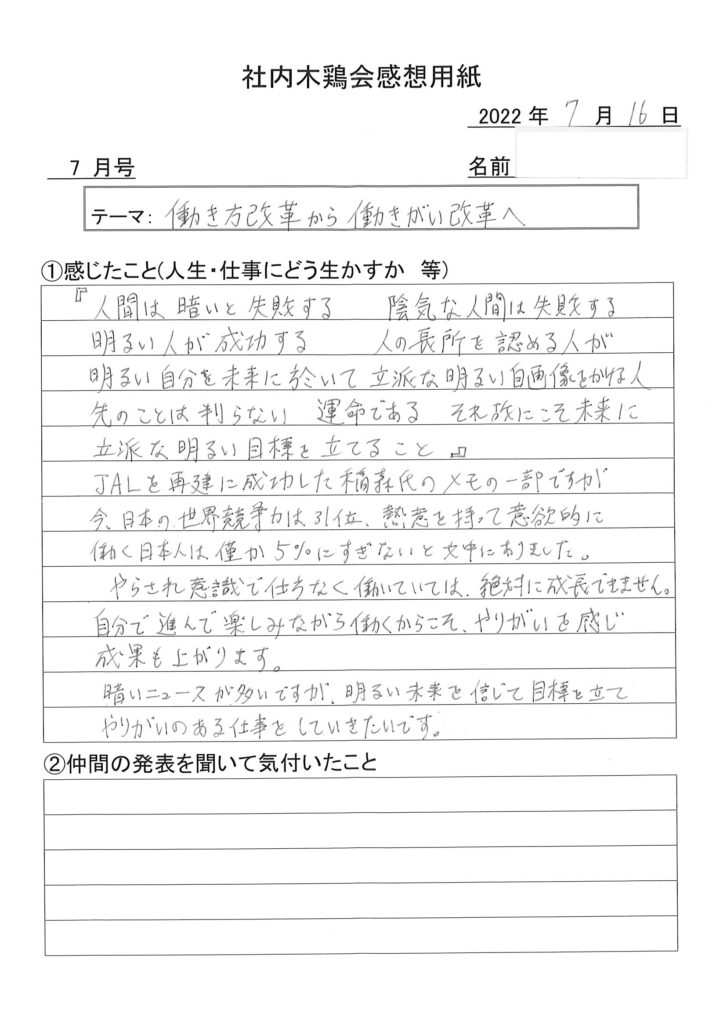 社内木鶏会感想用紙
2022 年 7 月 16 日
7 月号 名前
テーマ: 働き方改革から働きがい改革へ
①感じたこと(人生・仕事にどう生かすか 等)
『人間は暗いと失敗する 陰気な人間は失敗する
明るい人が成功する 人の長所を認める人が
明るい自分を未来に於いて立派な明るい自画像をかける人
先のことは判らない 運命である それ故にこそ未来に
立派な明るい目標を立てること』
JALを再建に成功した稲森氏のメモの一部ですが
今、日本の世界競争力は31位、熱意を持って意欲的に
働く日本人は僅か5%にすぎないと文中にありました。
やらされ意識で仕方なく働いていては、絶対に成長できません。
自分で進んで楽しみながら働くからこそ、やりがいを感じ
成果も上がります。
暗いニュースが多いですが、明るい未来を信じて目標を立て
やりがいのある仕事をしていきたいです。
②仲間の発表を聞いて気付いたこと